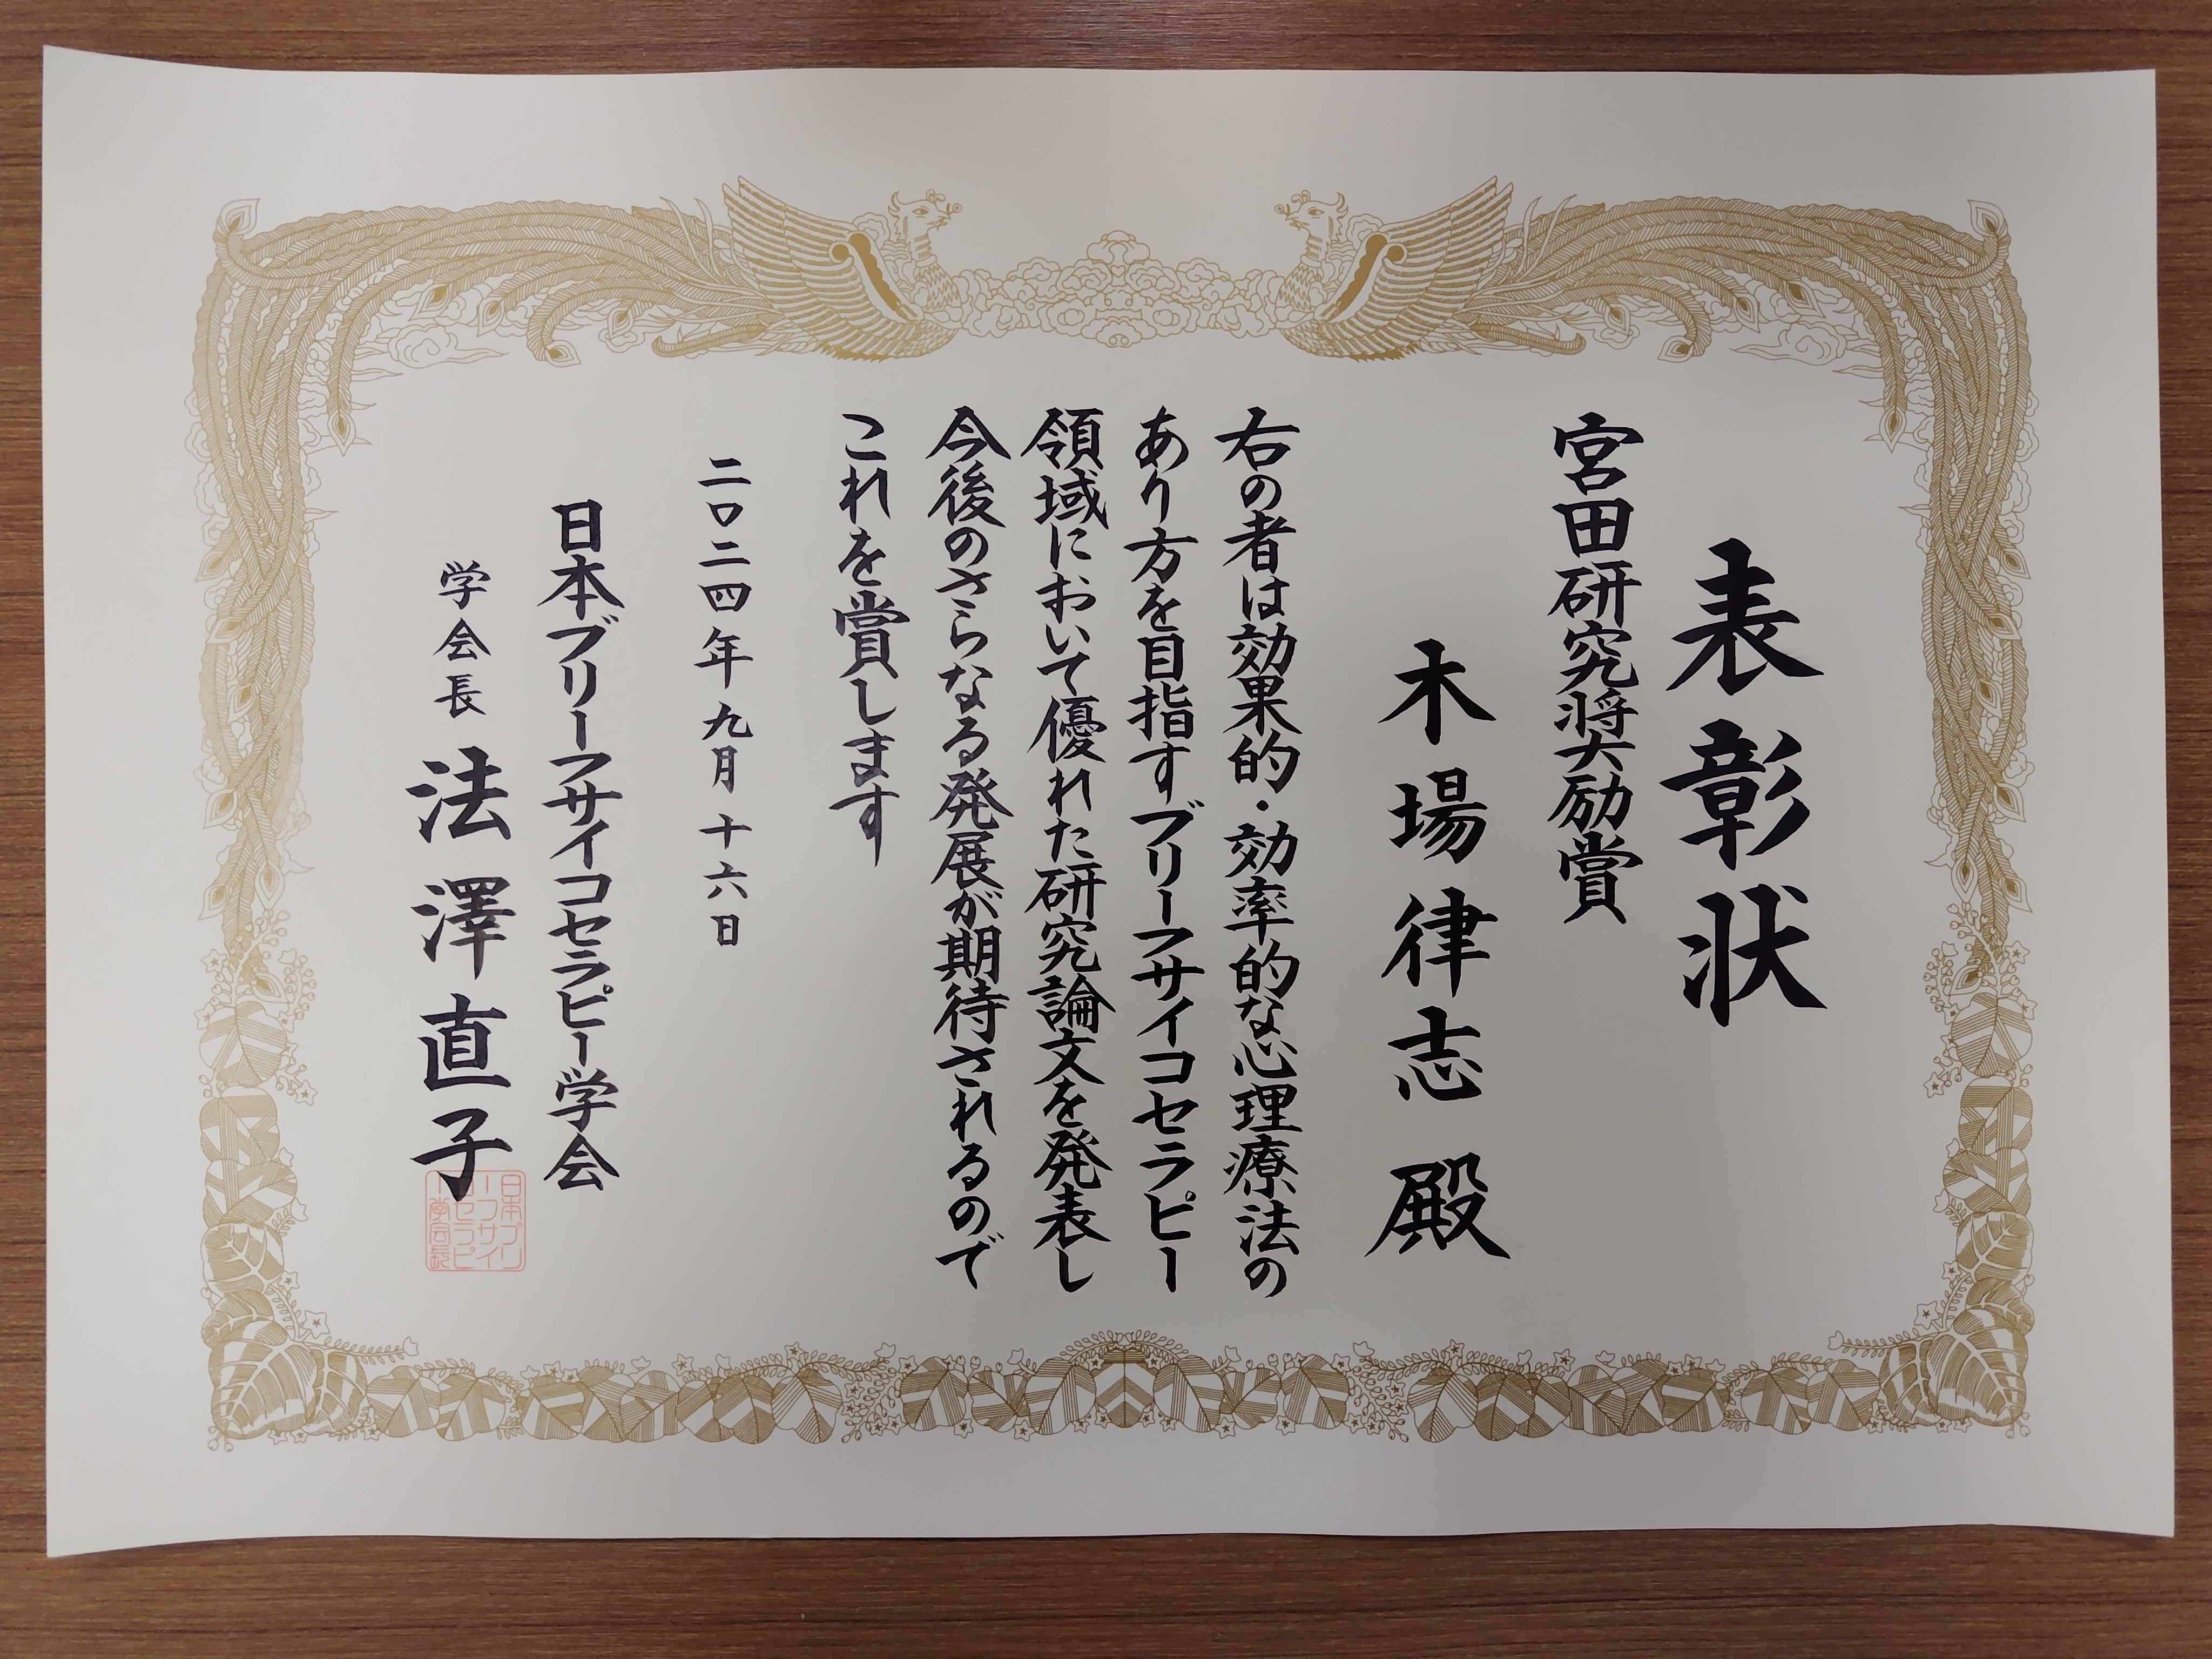 表彰状
宮田研究奨励賞
木場律志 殿
右の者は効果的・効率的な心理療法の
あり方を目指すブリーフサイコセラピー
領域において優れた研究論文を発表し
今後のさらなる発展が期待されるので
これを賞します
二〇二四年九月十六日
日本ブリーフサイコセラピー学会
学会長 法澤直子
日本ブリ
ーフサイ
コセラピ
ー学会長